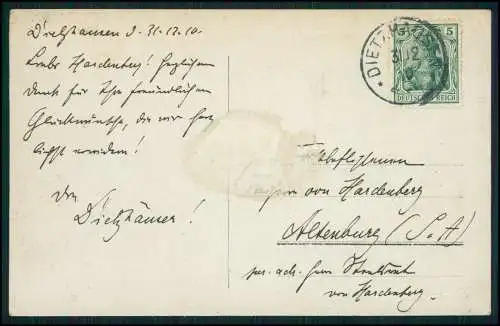 Dietzhausen d. 31.12.10.
Liebe Hardenberg! Herzlichen
Dank für Ihre freundlichen
Glückwünsche, die wir herz
lichst erwidern!
Die
Dietzhäuser!
DIETZHAUSEN
31.12
5
DEUTSCHES REICH
von Hardenberg
Altenburg (S. A)
per. adr. Herrn
von Hardenberg.